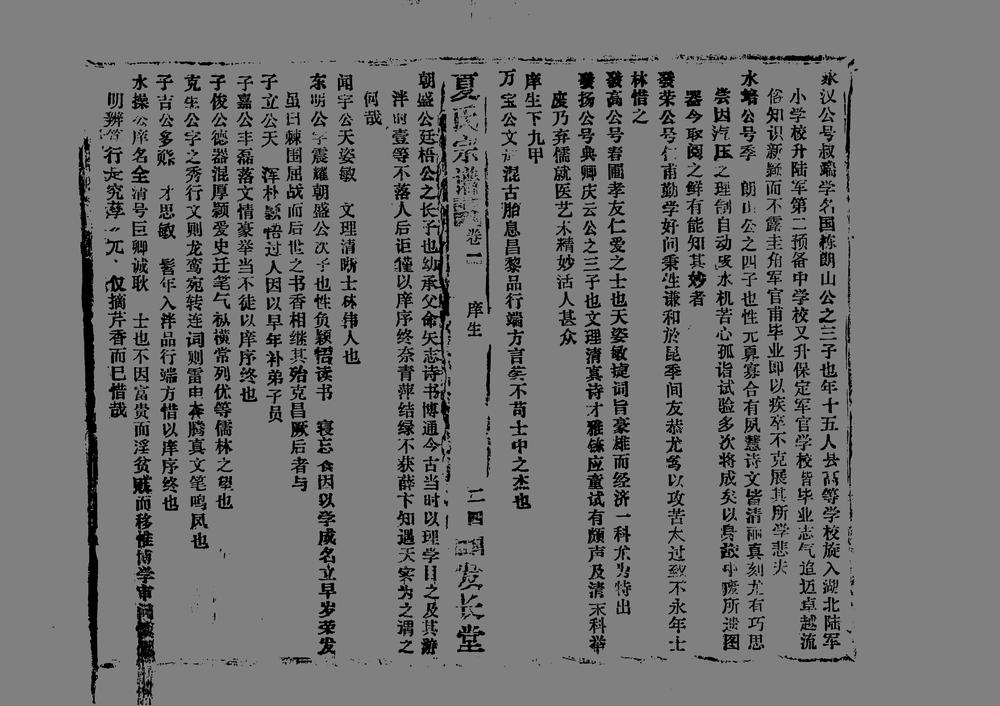 永汉公号叔瑞学名国栋朗山公之三子也年十五入县高等学校旋入湖北陆军
小学校升陆军第二预备中学校又升保定军官学校皆毕业志气迨迈卓越流
俗知识新颖而不露圭角军官甫毕业即以疾卒不克展其所学悲夫
水培公号季 朗山公之四子也性冗真寡合有夙慧诗文皆清丽真刻尤有巧思
尝因汽压之理制自动吸水机苦心孤诣试验多次将成矣以身故中废所遗图
器今取阅之鲜有能知其妙者
发荣公号仁甫勤学好问秉性谦和於昆季间友恭尤笃以攻苦太过致不永年士
林惜之
发高公号春圃孝友仁爱之士也天姿敏捷词旨豪雄而经济一科尤为特出
发扬公号典卿庆云公之三子也文理清真诗才雅铢应童试有颇声及清末科举
废乃弃儒就医艺术精妙活人甚众
庠生下九甲
万宝公文 混古胎息昌黎品行端方言笑不苟士中之杰也
夏氏宗谱 卷一 庠生 二四 发长堂
朝盛公廷梧公之长子也幼承父命矢志诗书博通今古当时以理学目之及其游
泮时壹等不落人后讵仅以庠序终奈青萍结绿不获薛卞知遇天实为之谓之
何哉
闻宇公天姿敏 文理清晰士林伟人也
东明公字震耀朝盛公次子也性负颖悟读书 寝忘食因以学成名立早岁荣发
虽曰棘围屈战而后世之书香相继其殆克昌厥后者与
子立公天 浑朴颖悟过人因以早年补弟子员
子嘉公丰磊落文情豪举当不徒以庠序终也
子俊公德器混厚颖爱史迁笔气纵横常列优等儒林之望也
克生公字之秀行文则龙鸾宛转连词则雷电奔腾真文笔鸣凤也
子吉公多 才思敏 髫年入泮品行端方惜以庠序终也
水操公庠名全清号巨卿诚耿 士也不因富贵而淫贫贱而移惟博学审问慎思
明辨笃行 究 仅摘芹香而已惜哉